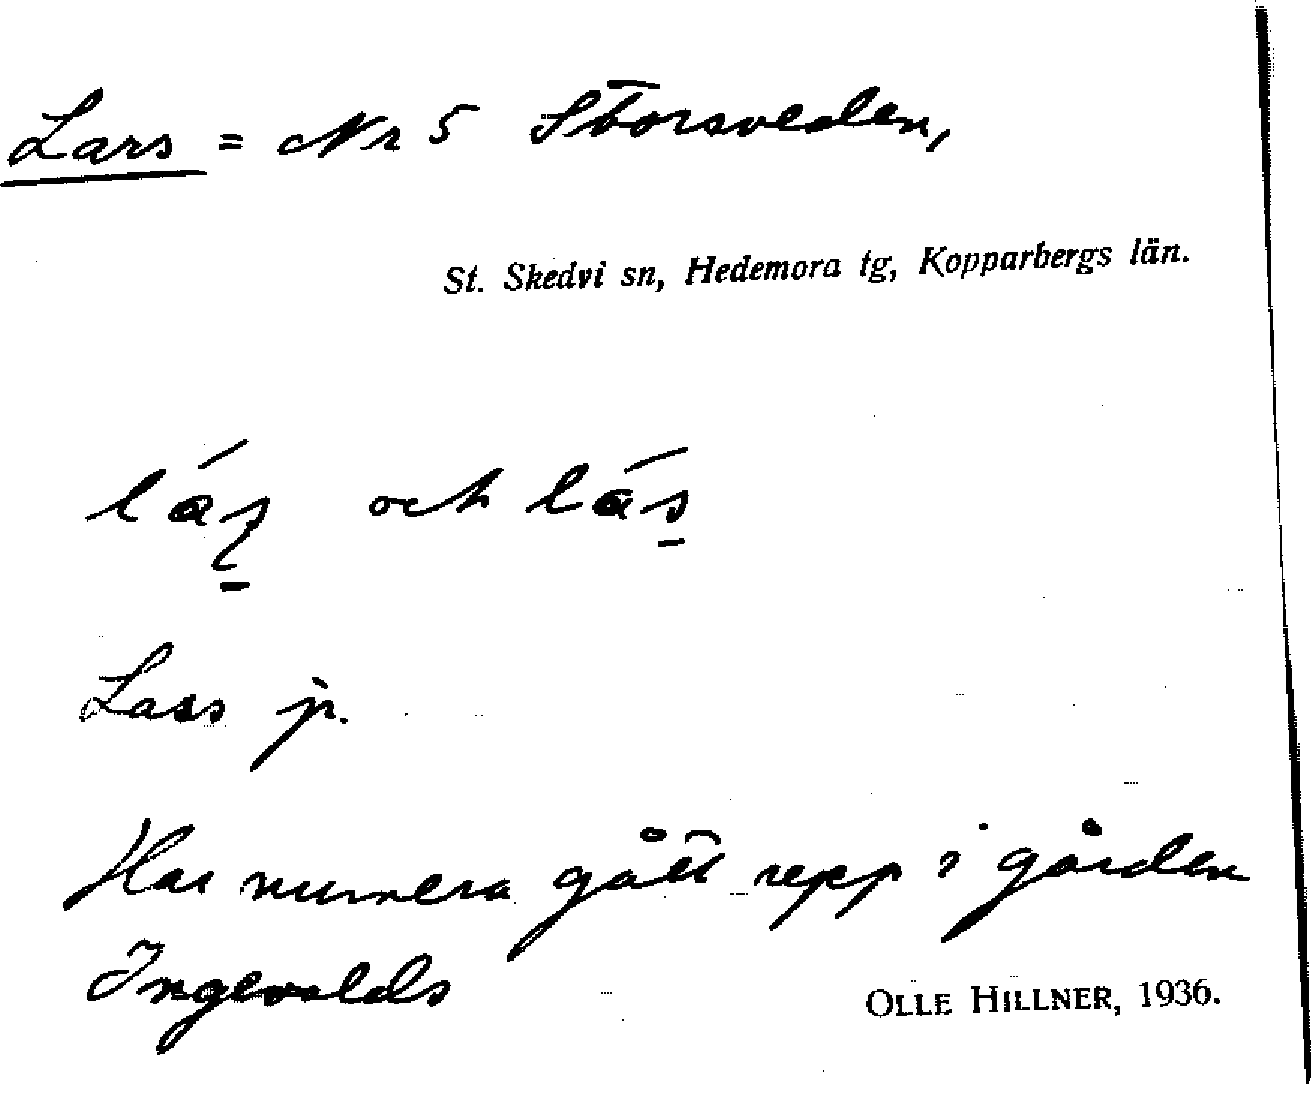 Lars = Nr 5 Storsveden,
St. Skedvi sn, Hedemora tg, Kopparbergs län.
och
Lars jr.
Har numera gått upp i gården
Ingevalds
OLLE HILLNER, 1936.